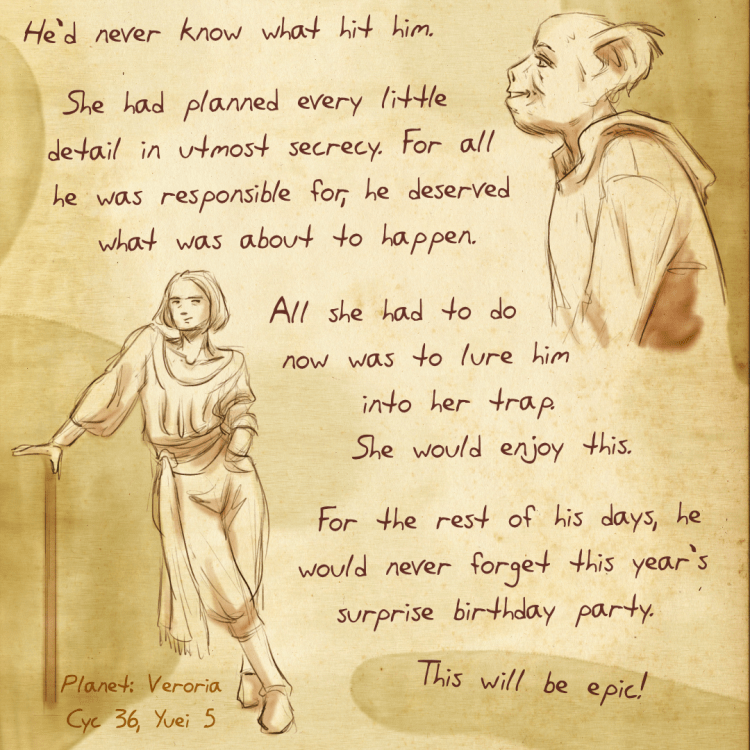 He'd never know what hit him.
She had planned every little
detail in utmost secrecy. For all
he was responsible for, he deserved
what was about to happen.
All she had to do
now was to lure him
into her trap.
She would enjoy this.
For the rest of his days, he
would never forget this year's
surprise birthday party.
This will be epic!
Planet: Veroria
Cyc 36, Yuei 5